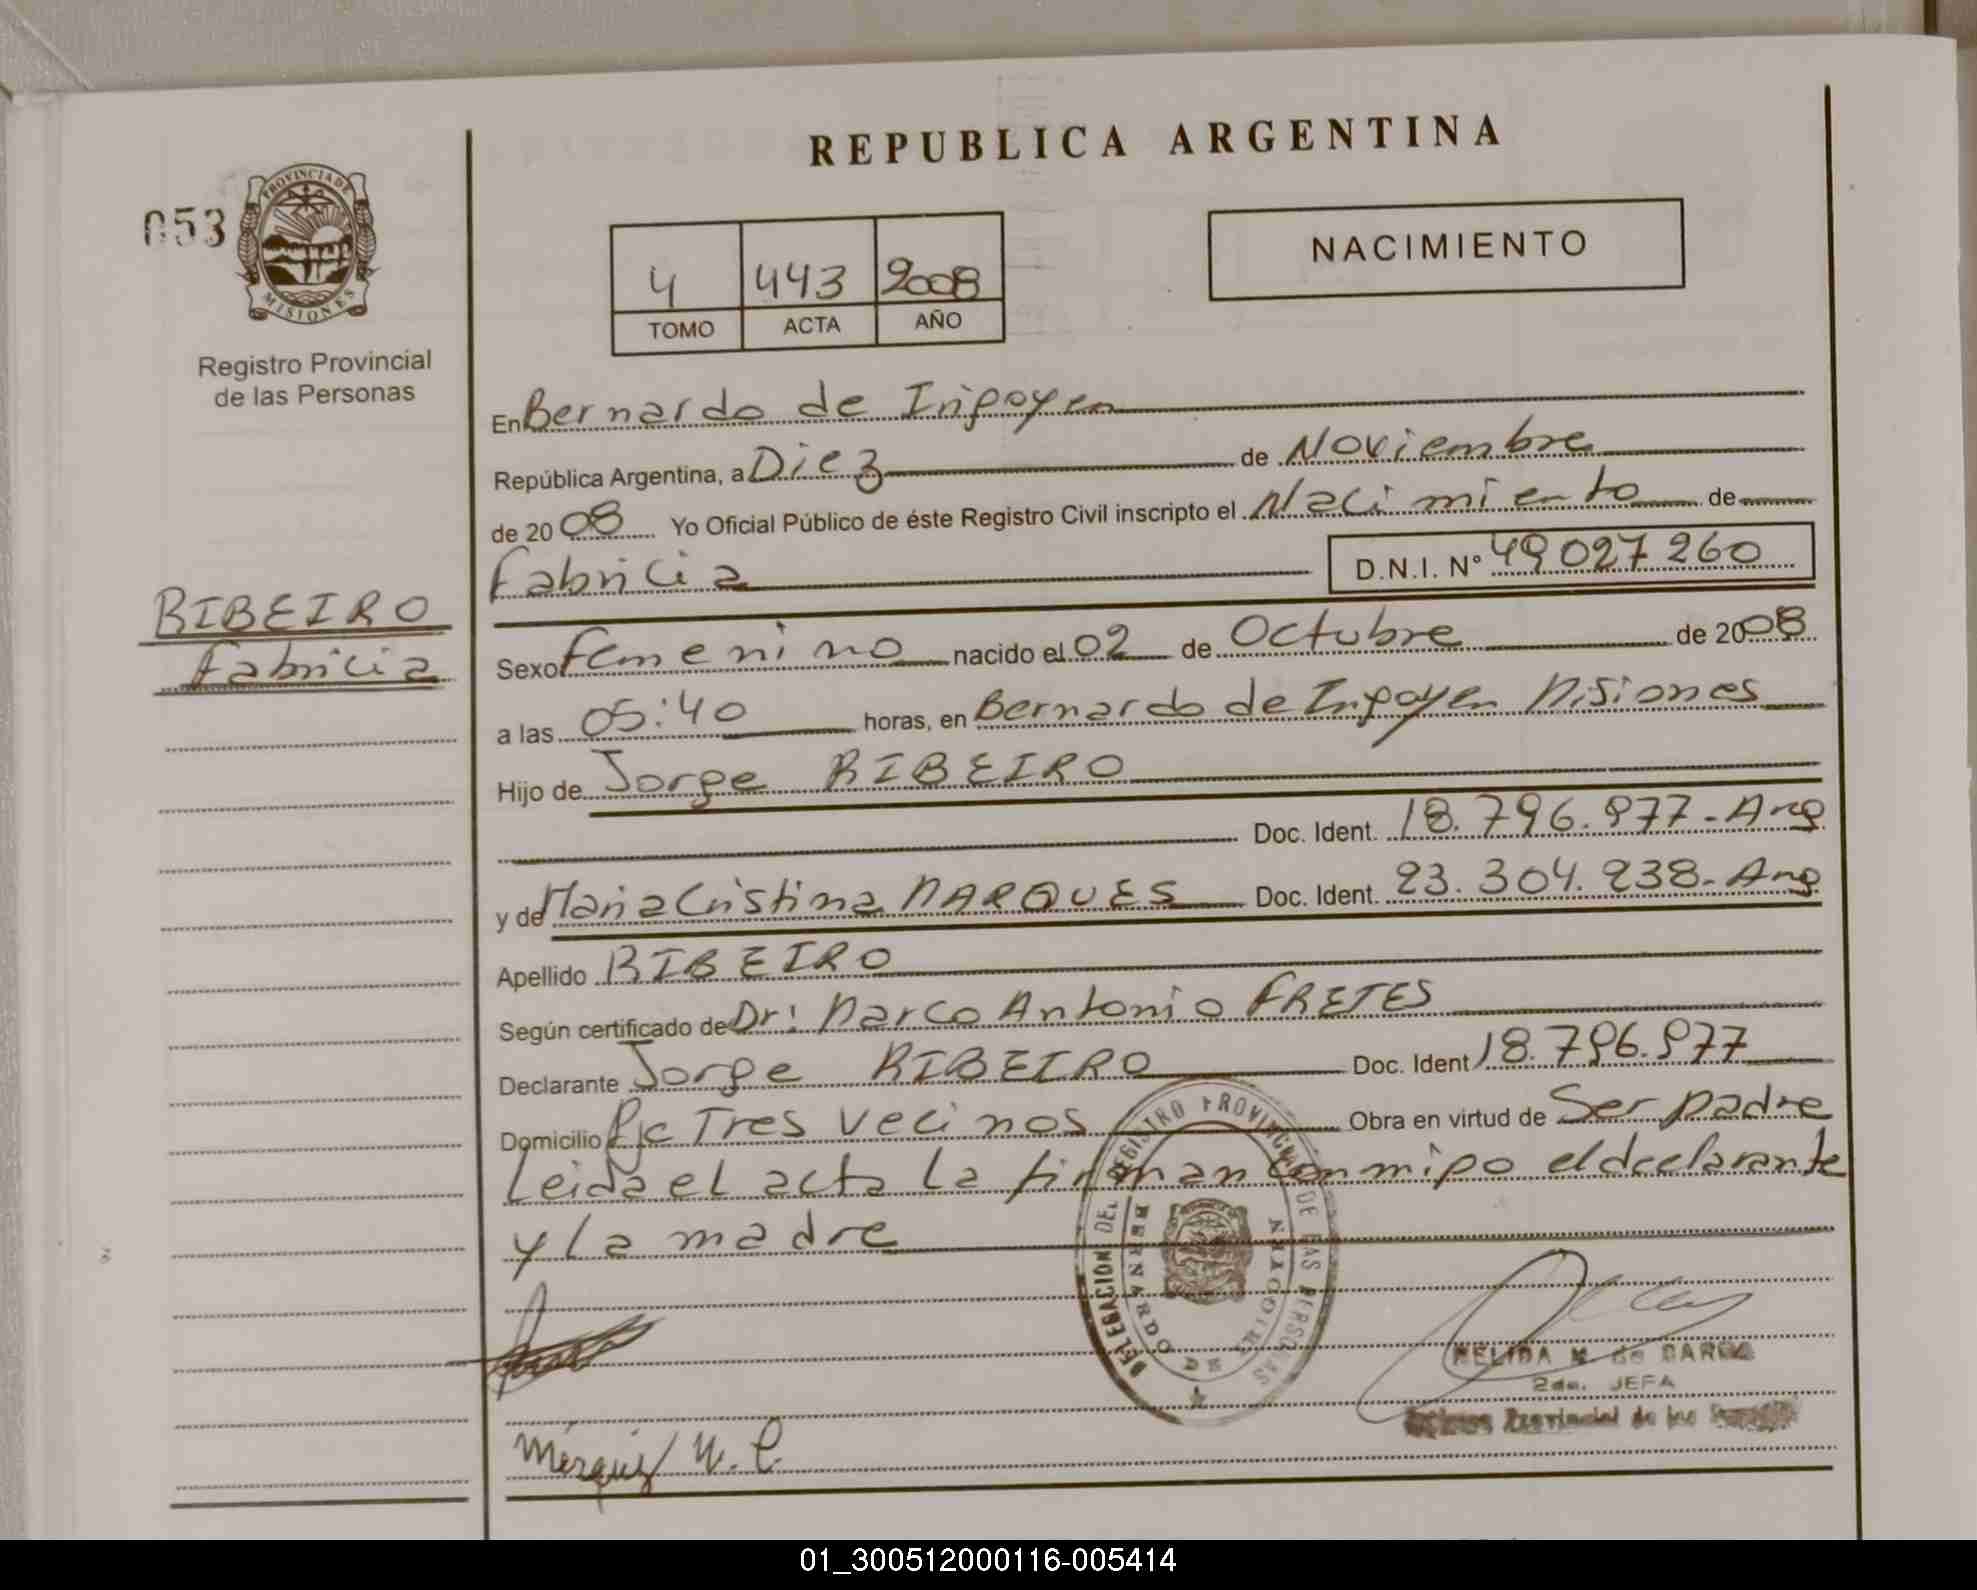 REPUBLICA ARGENTINA
053
PROVINCIA DE
MISIONES
Registro Provincial
de las Personas
4 443 2008
TOMO ACTA AÑO
NACIMIENTO
En Bernardo de Irigoyen
República Argentina, a Diez de Noviembre
de 2008 Yo Oficial Público de éste Registro Civil inscripto el Nacimiento de
Fabricia D.N.I. N° 49027260
RIBEIRO
Fabricia
Sexo Femenino nacido el 02 de Octubre de 2008
a las 05:40 horas, en Bernardo de Irigoyen Misiones
Hijo de Jorge RIBEIRO
Doc. Ident. 18.796.977-Arg
y de Maria Cristina MARQUES Doc. Ident. 23.304.238-Arg
Apellido RIBEIRO
Según certificado de Dr: Marco Antonio FRETES
Declarante Jorge RIBEIRO Doc. Ident 18.796.977
Domicilio Pje Tres Vecinos Obra en virtud de Ser padre
Leida el acta la firman conmigo el declarante
y la madre
DELEGACION DEL REGISTRO PROVINCIAL DE LAS PERSONAS
BERNARDO DE IRIGOYEN
NELIDA M. de
2da. JEFA
Provincial de las
M. C.
01_300512000116-005414